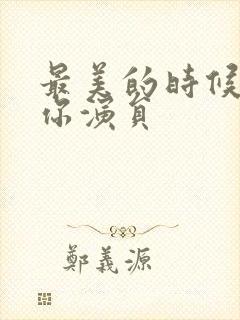 最美的時候
你演員
鄭義源